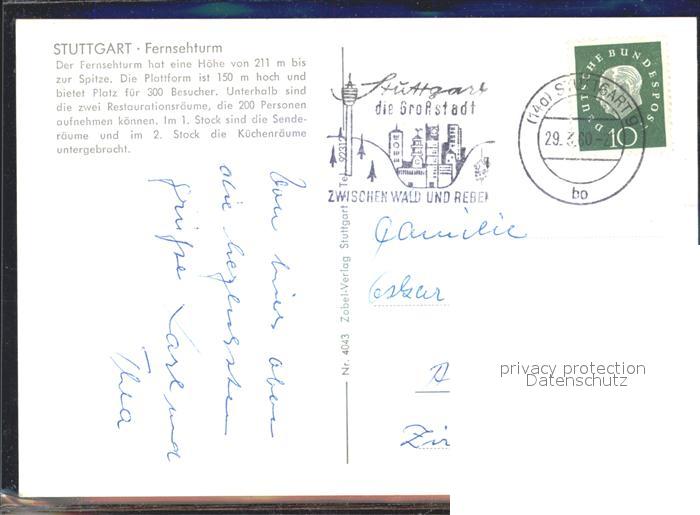 STUTTGART · Fernsehturm
Der Fernsehturm hat eine Höhe von 211 m bis
zur Spitze. Die Plattform ist 150 m hoch und
bietet Platz für 300 Besucher. Unterhalb sind
die zwei Restaurationsräume, die 200 Personen
aufnehmen können. Im 1. Stock sind die Sende-
räume und im 2. Stock die Küchenräume
untergebracht.
Von hier oben
die herzlichsten
Grüße Karl und
Thea
Nr. 4043 Zobel-Verlag Stuttgart Tel. 92312
Stuttgart
die Großstadt
ZWISCHEN WALD UND REBEN
(14a) STUTTGART 9
29. 60
bo
DEUTSCHE BUNDESPOS
10
Familie
Oskar
A
Zir
privacy protection
Datenschutz